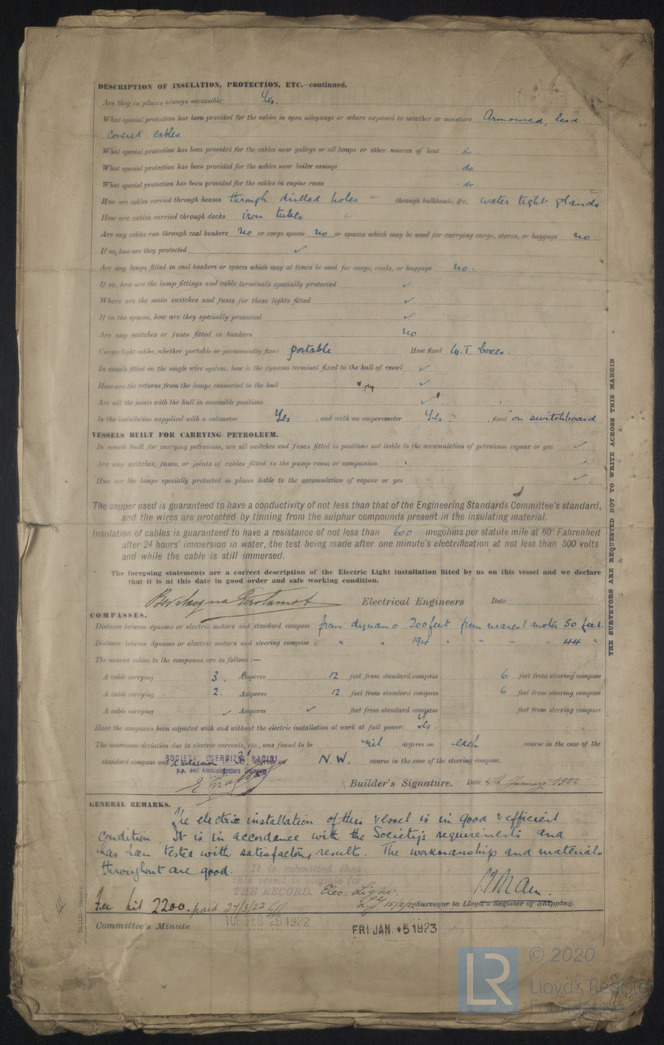 DESCRIPTION OF INSULATION, PROTECTION, ETC.—continued.
Are they in places always accessible Yes.
What special protection has been provided for the cables in open alleyways or where exposed to weather or moisture Armoured, lead
covered cables
What special protection has been provided for the cables near galleys or oil lamps or other sources of heat do.
What special protection has been provided for the cables near boiler casings do.
What special protection has been provided for the cables in engine room do.
How are cables carried through beams through drilled holes through bulkheads, &c. water tight glands
How are cables carried through decks iron tubes
Are any cables run through coal bunkers no or cargo spaces no or spaces which may be used for carrying cargo, stores, or baggage no
If so, how are they protected ✓
Are any lamps fitted in coal bunkers or spaces which may at times be used for cargo, coals, or baggage no.
If so, how are the lamp fittings and cable terminals specially protected ✓
Where are the main switches and fuses for these lights fitted ✓
If in the spaces, how are they specially protected ✓
Are any switches or fuses fitted in bunkers no
Cargo light cables, whether portable or permanently fixed portable How fixed W.T. boxes.
In vessels fitted on the single wire system, how is the dynamo terminal fixed to the hull of vessel ✓
How are the returns from the lamps connected to the hull
Are all the joints with the hull in accessible positions ✓
Is the installation supplied with a voltmeter Yes , and with an amperemeter Yes , fixed on switchboard
VESSELS BUILT FOR CARRYING PETROLEUM.
In vessels built for carrying petroleum, are all switches and fuses fitted in positions not liable to the accumulation of petroleum vapour or gas ✓
Are any switches, fuses, or joints of cables fitted in the pump room or companion
How are the lamps specially protected in places liable to the accumulation of vapour or gas ✓
The copper used is guaranteed to have a conductivity of not less than that of the Engineering Standards Committee's standard,
and the wires are protected by tinning from the sulphur compounds present in the insulating material.
Insulation of cables is guaranteed to have a resistance of not less than 600 megohms per statute mile at 60° Fahrenheit
after 24 hours' immersion in water, the test being made after one minute's electrification at not less than 500 volts
and while the cable is still immersed.
The foregoing statements are a correct description of the Electric Light installation fitted by us on this vessel and we declare
that it is at this date in good order and safe working condition.
Electrical Engineers Date
COMPASSES.
Distance between dynamo or electric motors and standard compass from dynamo 200 feet from nearest motor 50 feet
Distance between dynamo or electric motors and steering compass " " 194 " " " 44 "
The nearest cables to the compasses are as follows:—
A cable carrying 3. Amperes 12 feet from standard compass 6 feet from steering compass
A cable carrying 2. Amperes 12 feet from standard compass 6 feet from steering compass
A cable carrying ✓ Amperes ✓ feet from standard compass feet from steering compass
Have the compasses been adjusted with and without the electric installation at work at full power Yes
The maximum deviation due to electric currents, etc., was found to be nil degrees on each course in the case of the
standard compass and N.W. course in the case of the steering compass.
Builder's Signature. Date 1922
GENERAL REMARKS.
The electric installation of this vessel is in good & efficient
condition It is in accordance with the Society's requirements and
has been tested with satisfactory results. The workmanship and materials
throughout are good.
It is submitted that
this vessel is eligible for
THE RECORD. Elec. Light.
Fee Lit 2200. paid 27/3/22
Surveyor to Lloyd's Register of Shipping.
Committee's Minute TUE FEB 28 1922
FRI. JAN. 5 1923
THE SURVEYORS ARE REQUESTED NOT TO WRITE ACROSS THIS MARGIN
© 2020
LR Lloyd's Register
Foundation